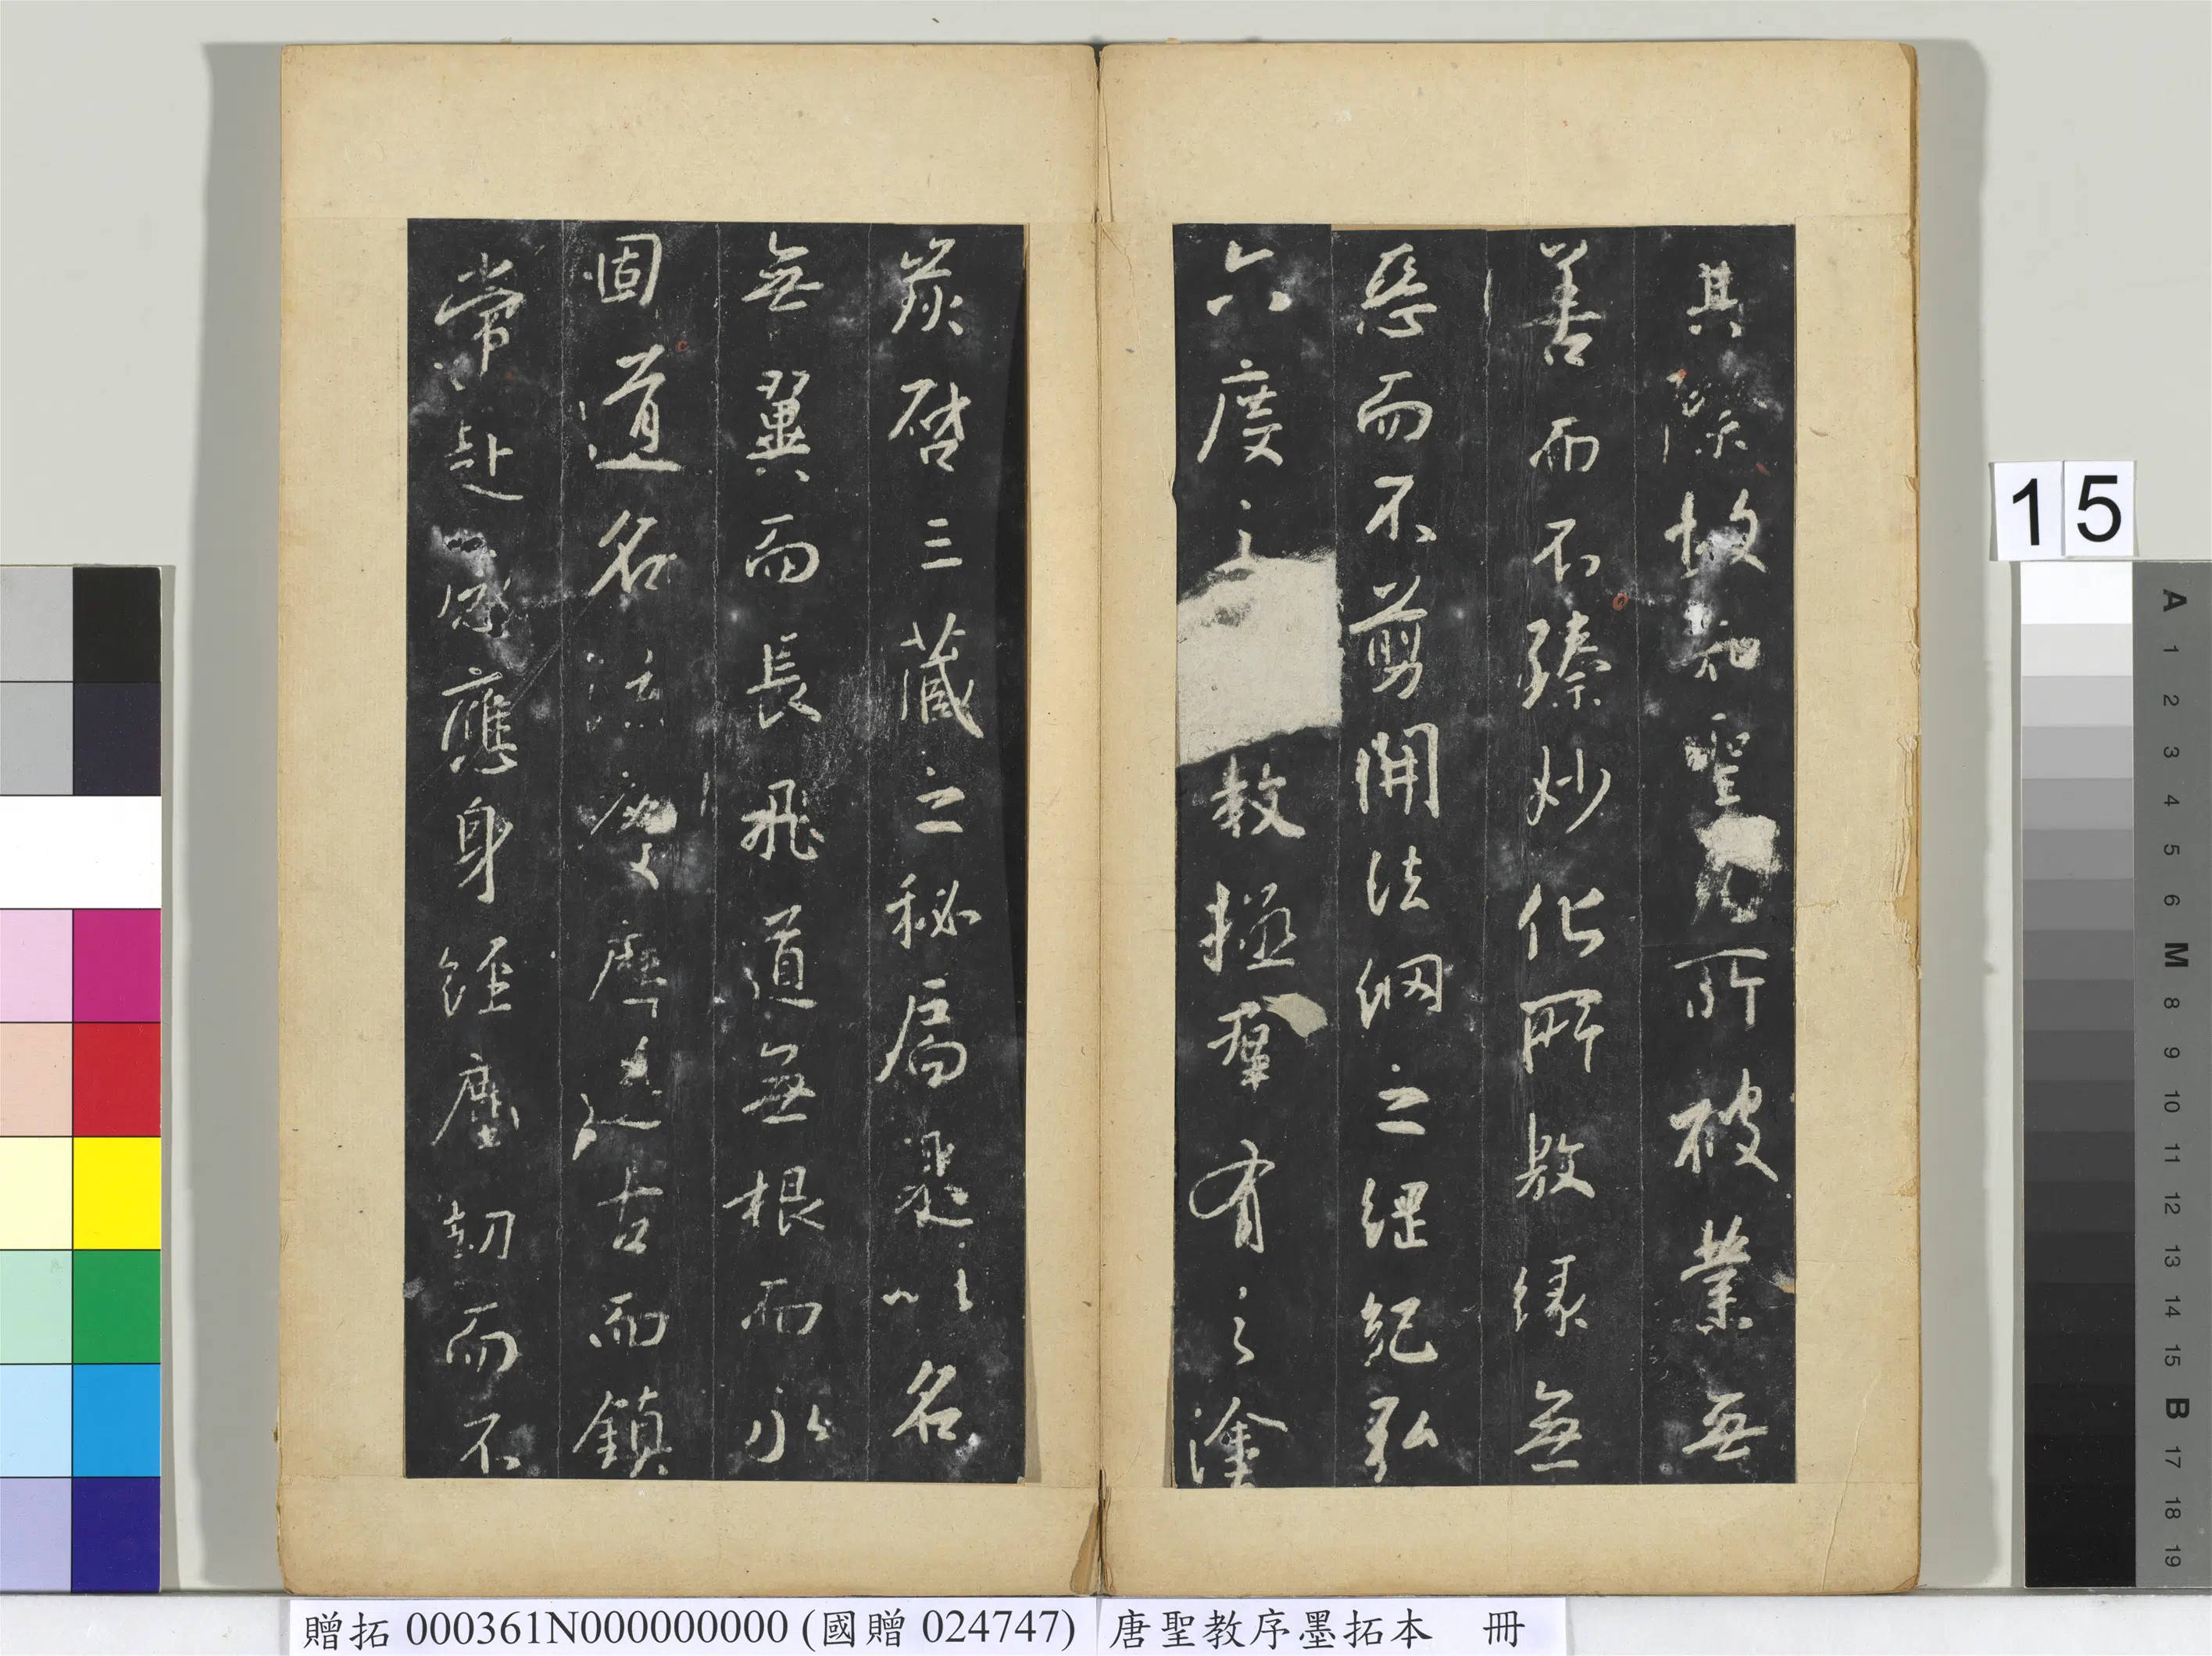 其際故知聖所被業無
善而不臻妙化所敷緣無
惡而不剪開法網之綱紀弘
六度之教拯羣有之塗
炭啓三藏之秘扃是以名
無翼而長飛道無根而永
固道名流慶歷遂古而鎮
常赴感應身經塵劫而不
15
A 1 2 3 4 5 6 M 8 9 10 11 12 13 14 15 B 17 18 19
贈拓 000361N000000000 (國贈 024747) 唐聖教序墨拓本 冊